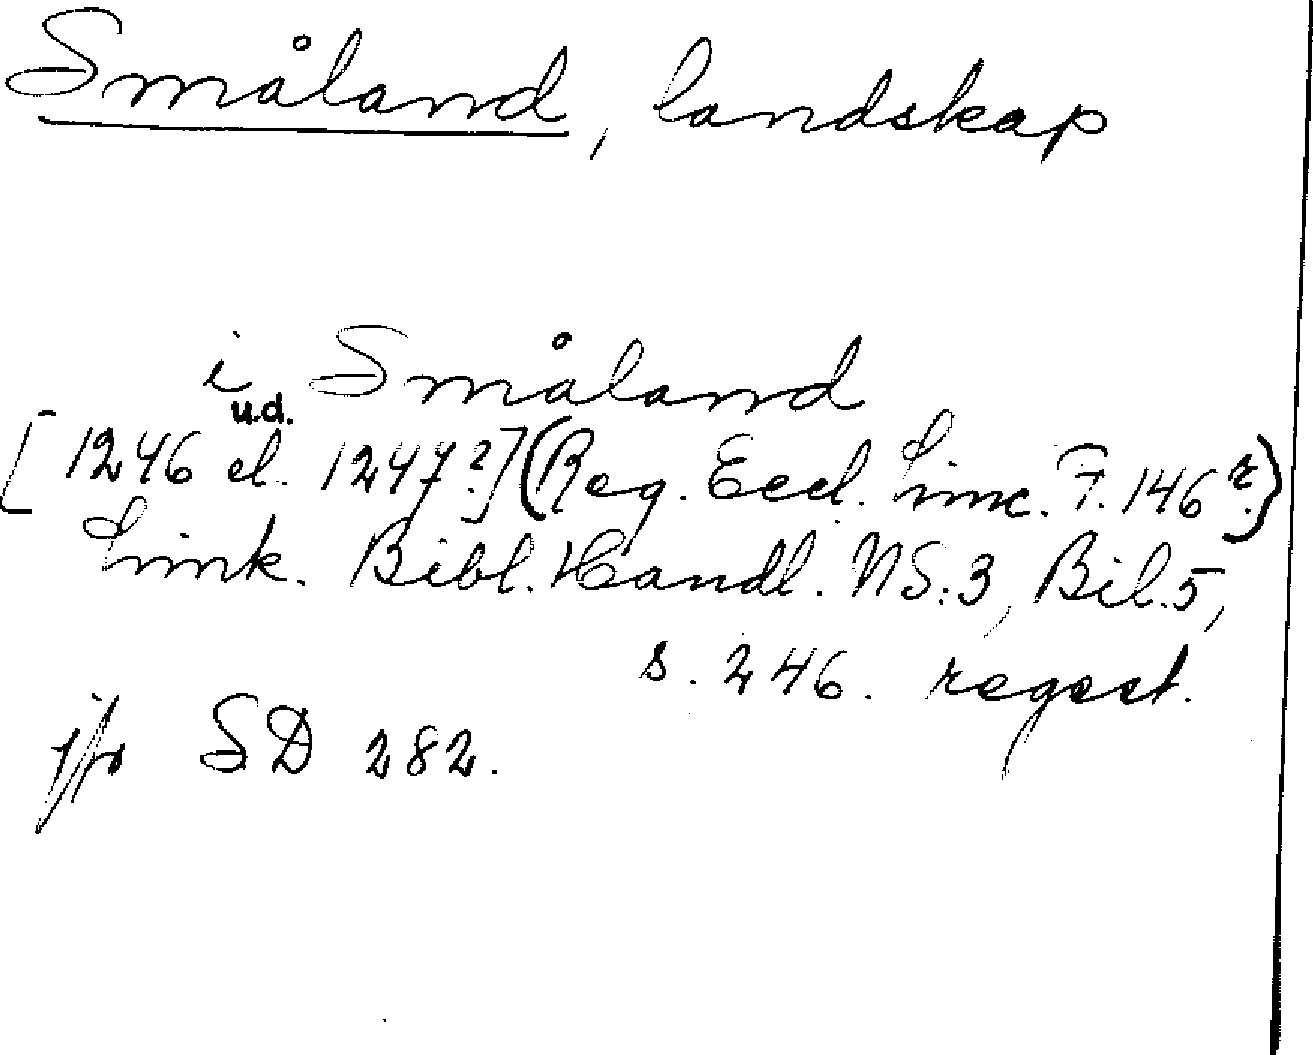 Småland, landskap
i Småland
u.d.
[1246 el. 1247?] (Reg. Eccl. Linc. F. 146 r.)
Link. Bibl. Handl. NS:3, Bil.5,
s. 246. regest.
jfr SD 282.